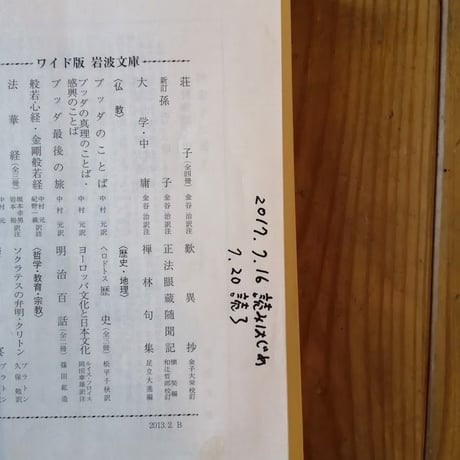 ワイド版 岩波文庫
荘子（全四冊） 金谷治訳注
新訂 孫子 金谷治訳注
大学・中庸 金谷治訳注
〈仏教〉
ブッダのことば 中村元訳
ブッダの真理のことば・
感興のことば 中村元訳
ブッダ最後の旅 中村元訳
般若心経・金剛般若経 中村元 紀野一義訳註
法華経（全三冊） 坂本幸男 岩本裕訳注
歎異抄 金子大栄校訂
正法眼蔵随聞記 懐奘編 和辻哲郎校訂
禅林句集 足立大進編
〈歴史・地理〉
ヘロドトス 歴史（全三冊） 松平千秋訳
ヨーロッパ文化と日本文化 ルイス・フロイス 岡田章雄訳注
明治百話（全二冊） 篠田鉱造
〈哲学・教育・宗教〉
ソクラテスの弁明・クリトン プラトン 久保勉訳
2013.2.B
2017.7.16 読みはじめ
7.20 読了